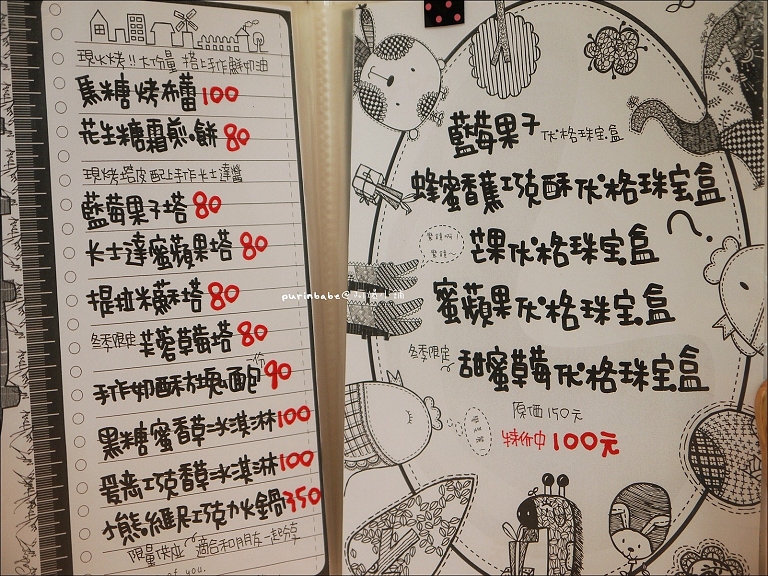 現火烤!!大份量 搭上手作鮮奶油
焦糖烤布蕾100
花生糖霜煎餅80
現烤塔皮配上手作卡士達醬
藍莓果子塔80
卡士達蜜蘋果塔80
提拉米蘇塔80
冬季限定 芙蓉草莓塔80
手作奶酥大塊麵包 一份90
黑糖蜜香草冰淇淋100
爆漿巧克香草冰淇淋100
小熊維尼巧克力火鍋350
限量供应 適合和朋友一起分享
of you.
藍莓果子伏格珠宝盒
蜂蜜香蕉巧克酥伏格珠宝盒
芒果伏格珠宝盒
蜜蘋果伏格珠宝盒
冬季限定 甜蜜草莓伏格珠宝盒
原価150元
特价中100元
purinbabe@